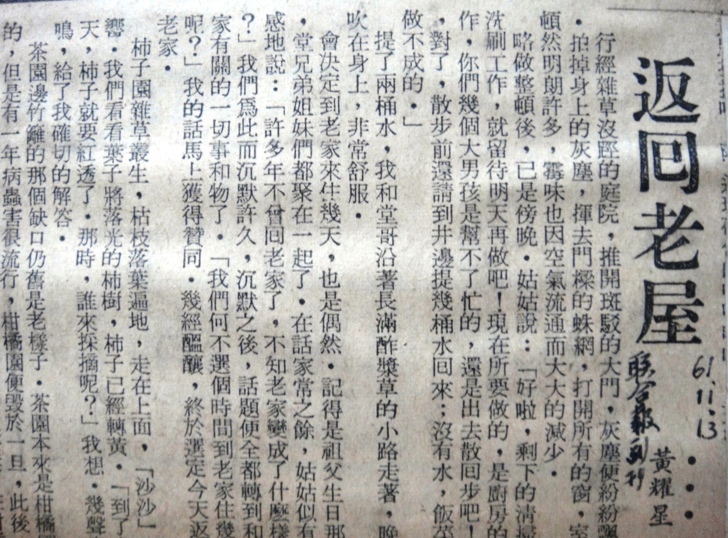 返回老屋
61.11.13
聯合報副刊
黃耀星
行經雜草沒脛的庭院，推開斑駁的大門，灰塵便紛紛飄
．拍掉身上的灰塵，揮去門樑的蛛網，打開所有的窗，室
頓然明朗許多，霉味也因空氣流通而大大的減少．
略做整頓後，已是傍晚．姑姑說：「好啦，剩下的清掃
洗刷工作，就留待明天再做吧！現在所要做的，是廚房的
作，你們幾個大男孩是幫不了忙的，還是出去散回步吧！
，對了，散步前還請到井邊提幾桶水回來；沒有水，飯菜
做不成的．」
提了兩桶水，我和堂哥沿著長滿酢漿草的小路走著，晚
吹在身上，非常舒服．
會決定到老家來住幾天，也是偶然．記得是祖父生日那
，堂兄弟姐妹們都聚在一起了．在話家常之餘，姑姑似有
感地說：「許多年不曾回老家了，不知老家變成了什麼樣
？」我們爲此而沉默許久，沉默之後，話題便全都轉到和
家有關的一切事和物了．「我們何不選個時間到老家住幾
呢？」我的話馬上獲得贊同．幾經醞釀，終於選定今天返
老家．
柿子園雜草叢生，枯枝落葉遍地，走在上面，「沙沙」
響．我們看看葉子將落光的柿樹，柿子已經轉黃．「到了
天，柿子就要紅透了．那時，誰來採摘呢？」我想．幾聲
鳴，給了我確切的解答．
茶園邊竹籬的那個缺口仍舊是老樣子．茶園本來是柑橘
的，但是有一年病蟲害很流行，柑橘園便毀於一旦，此後